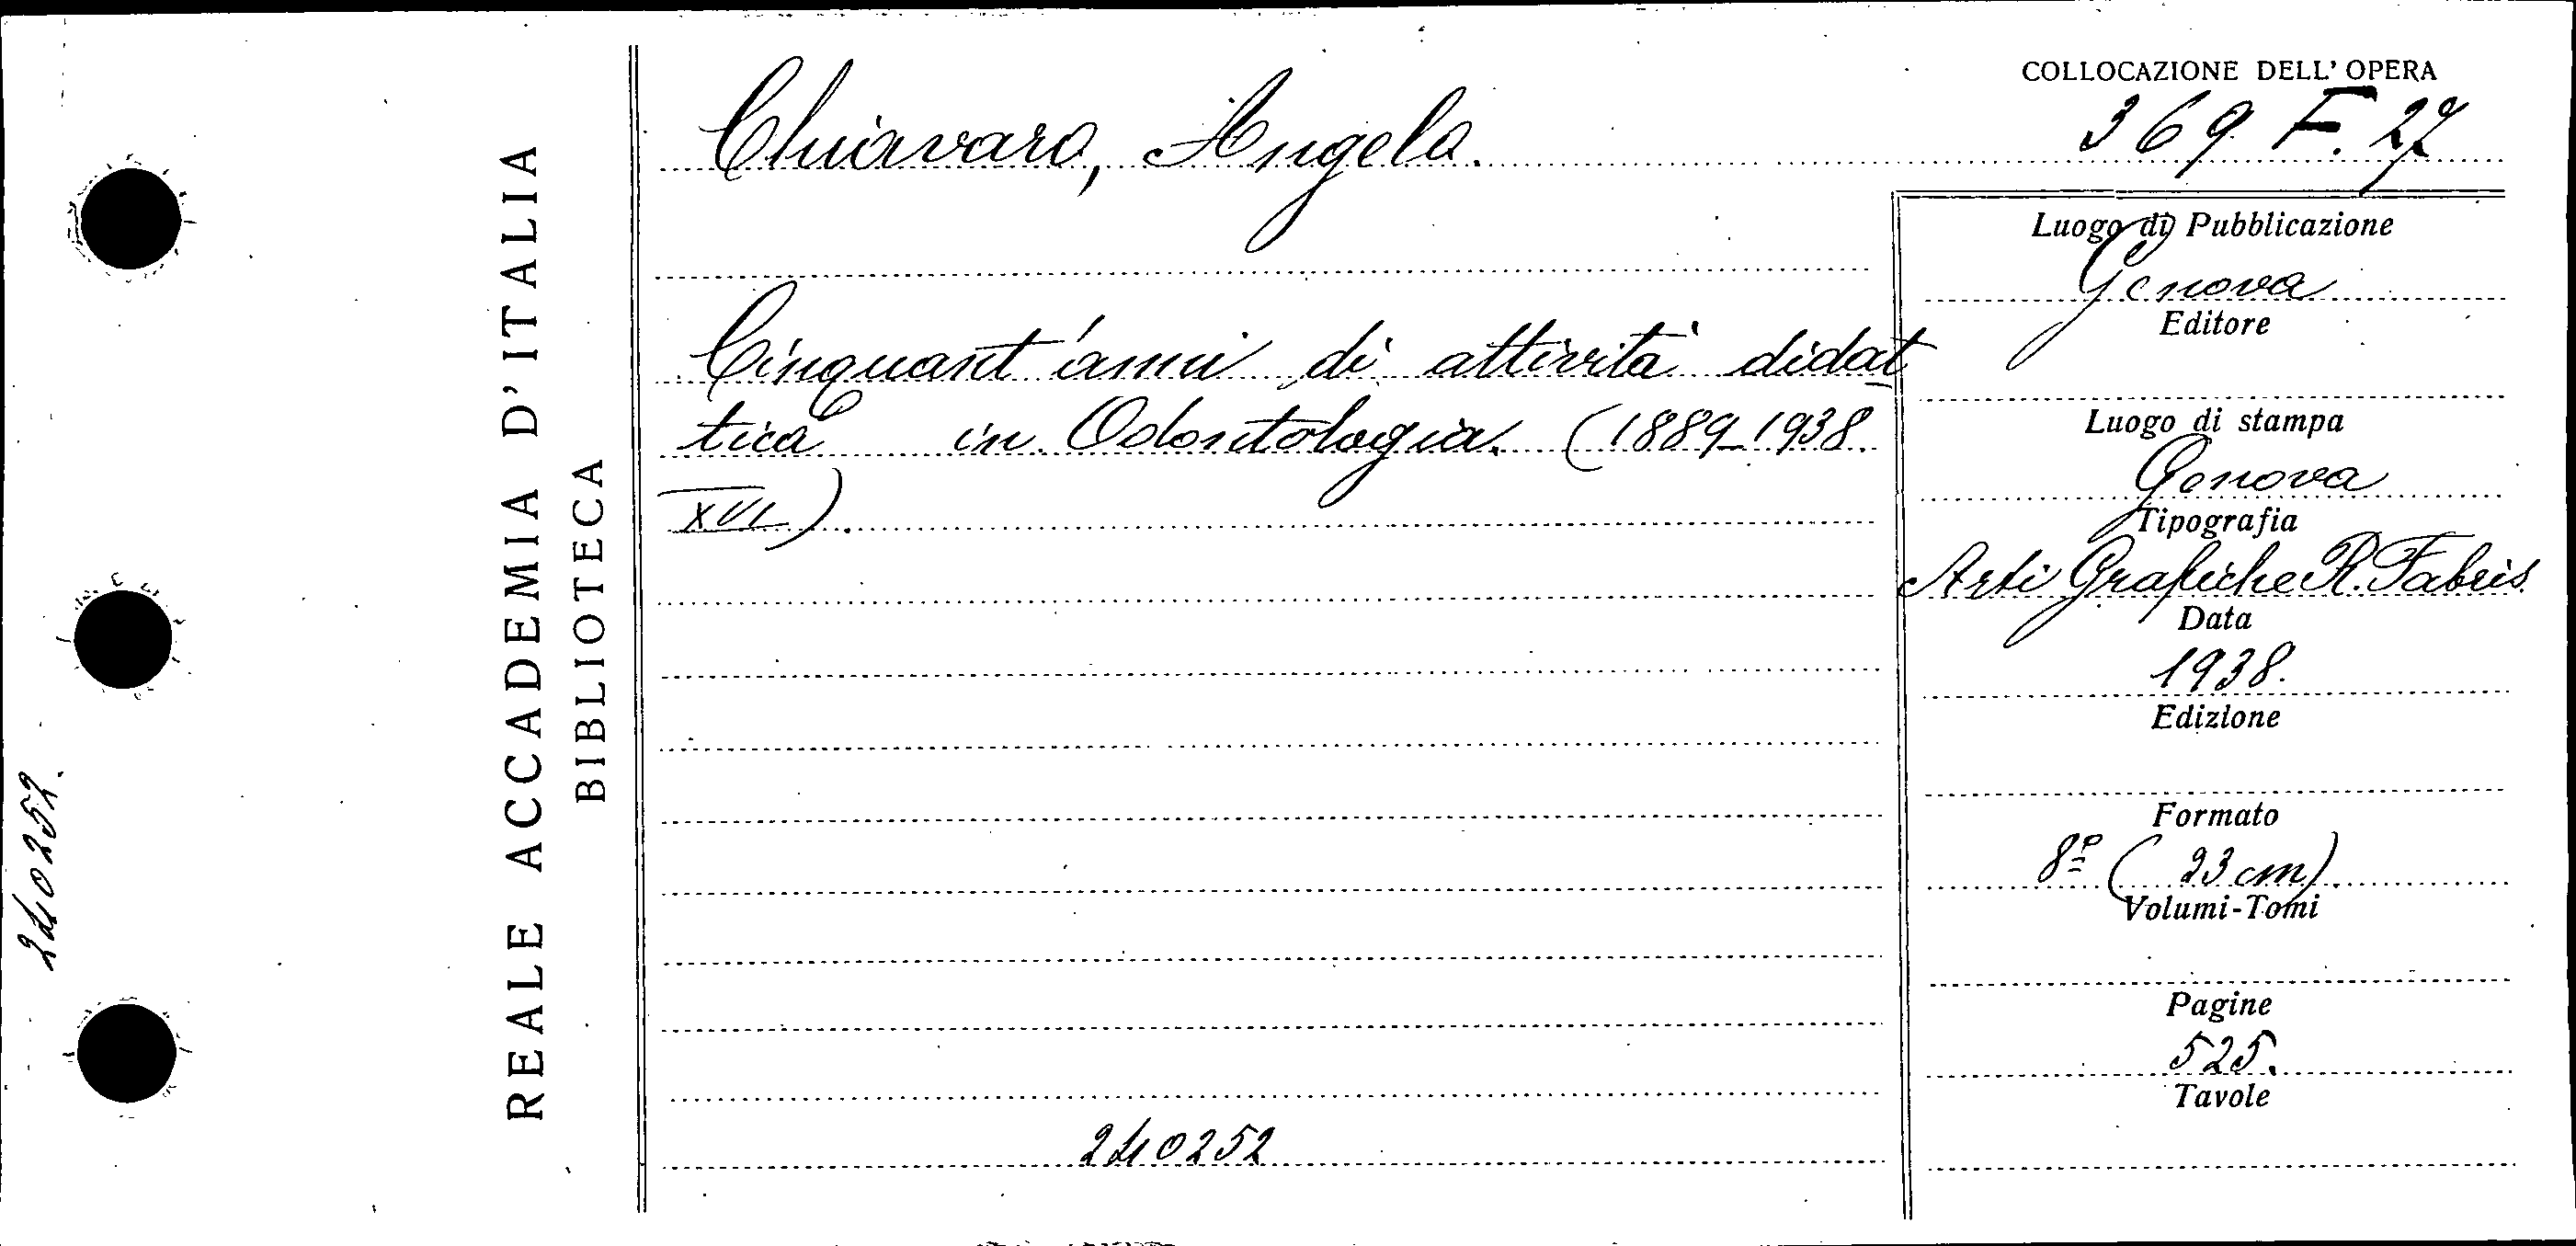 COLLOCAZIONE DELL' OPERA
369. F. 27
Chiavaro, Angelo.
Cinquant'anni di attività didat
tica in Odontologia. (1889-1938
XVI).
240252
Luogo di Pubblicazione
Genova
Editore
Luogo di stampa
Genova
Tipografia
Arti Grafiche R. Fabris.
Data
1938.
Edizione
Formato
8º (23 cm).
Volumi-Tomi
Pagine
525.
Tavole
REALE ACCADEMIA D'ITALIA
BIBLIOTECA
240252.